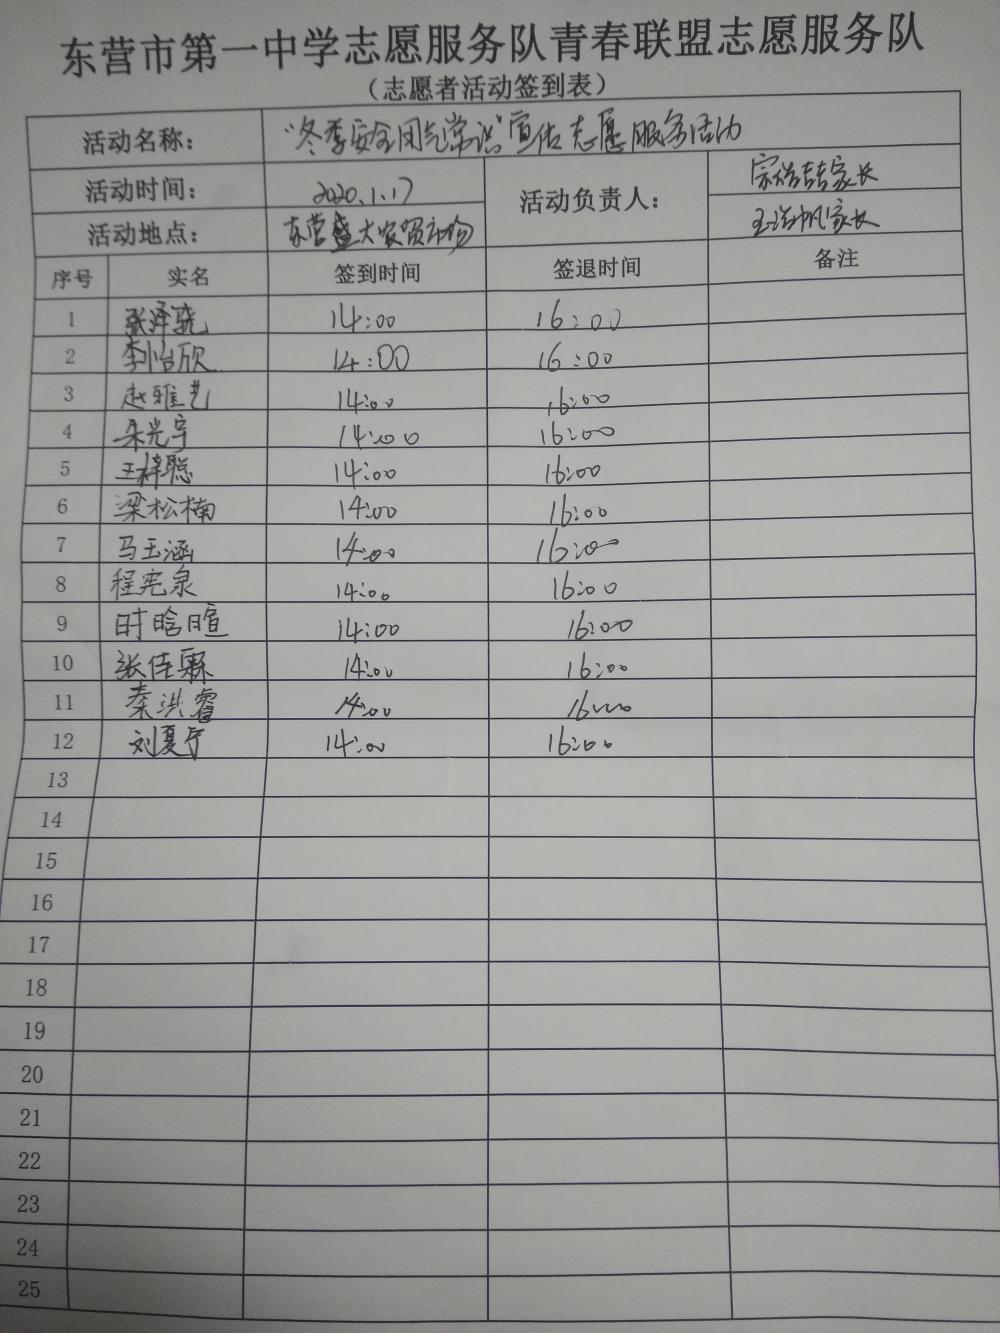 东营市第一中学志愿服务队青春联盟志愿服务队
（志愿者活动签到表）
活动名称： “冬季安全用气常识”宣传志愿服务活动
活动时间： 2020.1.17 活动负责人： 家长
活动地点： 东营盛大农贸市场 家长
序号 实名 签到时间 签退时间 备注
1 张泽骁 14:00 16:00
2 李怡欣 14:00 16:00
3 赵雅艺 14:00 16:00
4 朱光宇 14:00 16:00
5 王梓聪 14:00 16:00
6 梁松楠 14:00 16:00
7 马玉涵 14:00 16:00
8 程宪泉 14:00 16:00
9 时晗暄 14:00 16:00
10 张佳霖 14:00 16:00
11 秦洪睿 14:00 16:00
12 刘夏宁 14:00 16:00
13
14
15
16
17
18
19
20
21
22
23
24
25